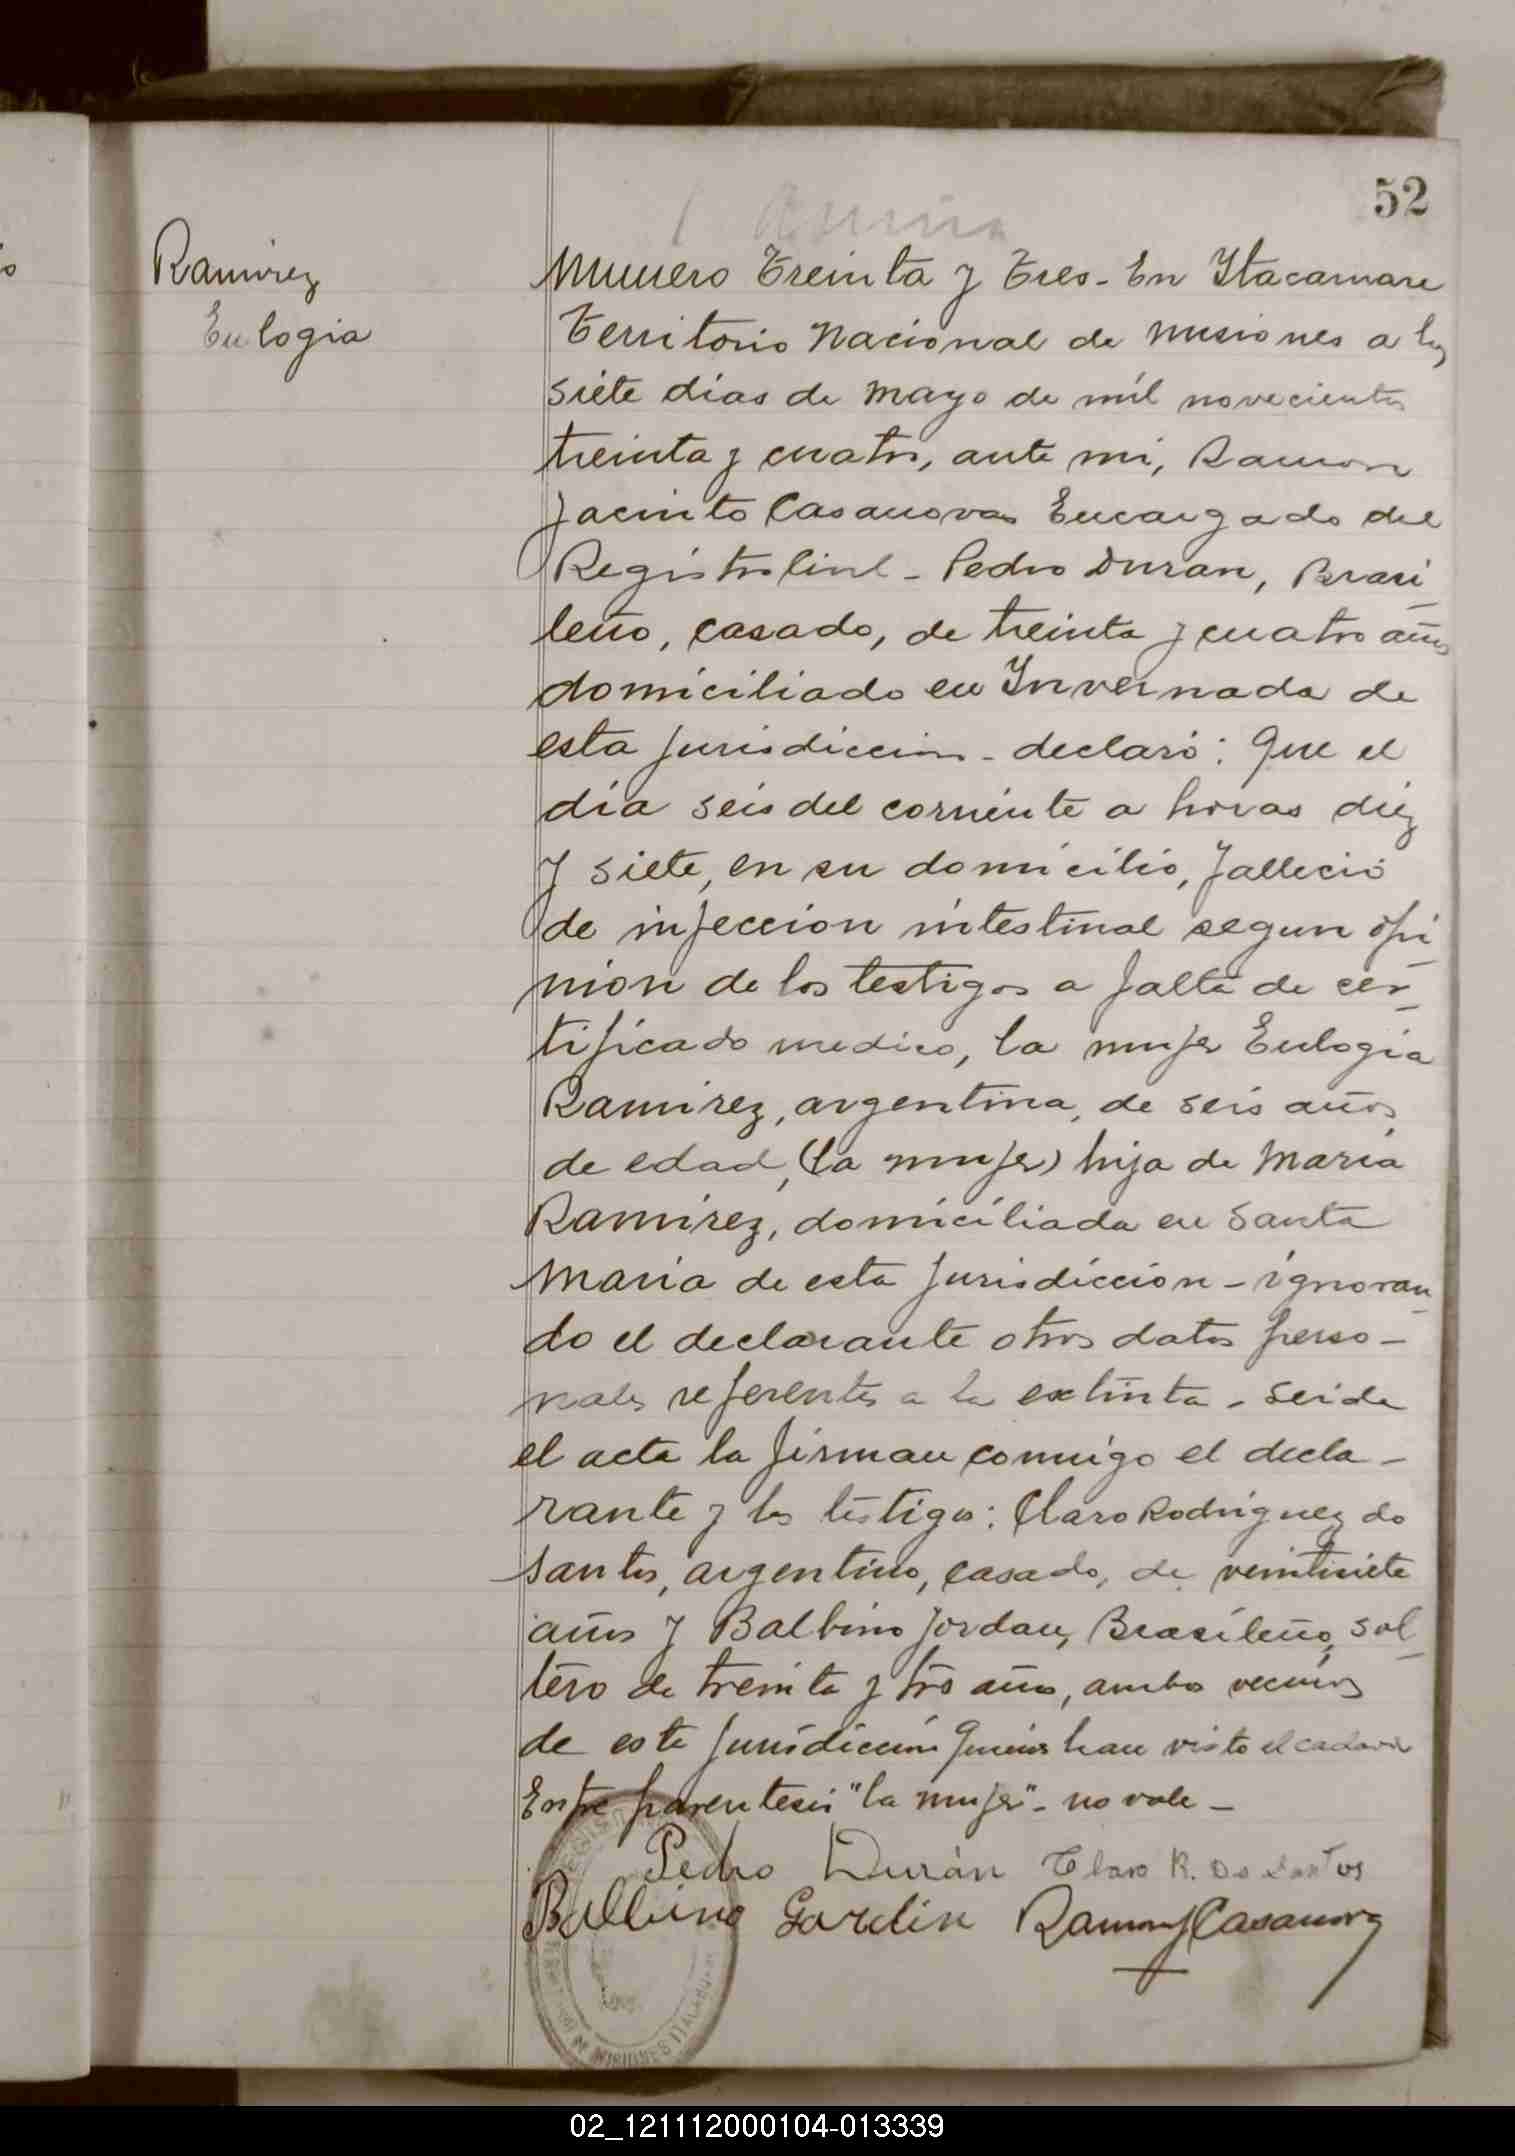 52
Ramirez
Eulogia
Numero Treinta y Tres - En Itacaruare
Territorio Nacional de Misiones a los
siete dias de Mayo de mil novecientos
treinta y cuatro, ante mi, Ramon
Jacinto Casanova Encargado del
Registro Civil - Pedro Duran, Brasi
leño, casado, de treinta y cuatro años
domiciliado en Invernada de
esta jurisdiccion - declaró: Que el
dia seis del corriente a horas diez
y siete, en su domicilio, falleció
de infeccion intestinal segun opi
nion de los testigos a falta de cer-
tificado medico, la mujer Eulogia
Ramirez, argentina, de seis años,
de edad, (la mujer) hija de Maria
Ramirez, domiciliada en Santa
Maria de esta jurisdiccion - ignoran
do el declarante otros datos perso-
nales referentes a la extinta - Leida
el acta la firman conmigo el decla-
rante y los testigos: Claro Rodriguez do
Santos, argentino, casado, de veintisiete
años y Balbino Jordan, Brasileño, sol
tero de treinta y tres años, ambos vecinos
de esta jurisdiccion quienes han visto el cadaver
Entre parentesis "la mujer" - no vale -
Pedro Durán Claro R. Do Santos
Balbino Gordin Ramon J Casanova
MISIONES
02_121112000104-013339